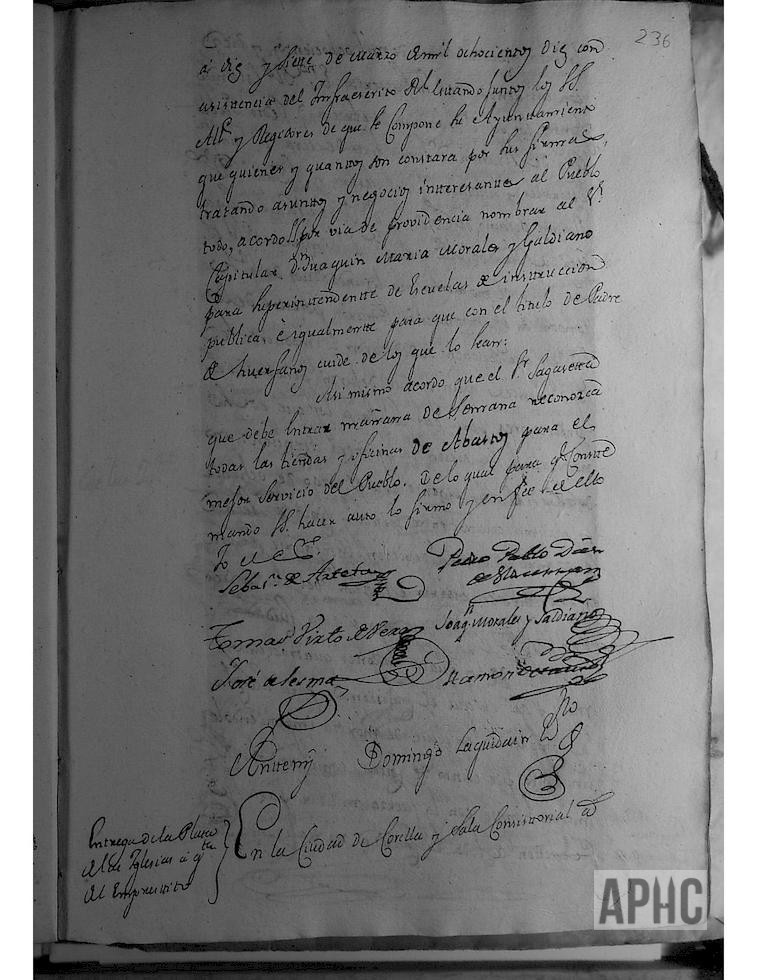 236
a diez y siete de Marzo de mil ochocientos diez con
asistencia del Infraescrito estando juntos los SS.
Alc.e y Regidores de que se Compone su Ayuntamiento
que quienes y quantos son constara por sus firmas,
tratando asuntos y negocios interesantes al Pueblo
todo, acordo por via de providencia nombrar al S.r
Capitular D.n Joaquin Maria Morales y Galdiano
para Superintendente de Escuelas de instruccion
publica, è igualmente para que con el titulo de Padre
de huerfanos cuide de los que lo sean:
Asimismo acordo que el S.r Sagaseta
que debe Entrar mañana de Semana reconozca
todas las tiendas y oficinas de Abastos para el
mejor Servicio del Pueblo. De lo qual para q.e Conste
mando SS. hacer auto lo firmo y en fee de ello
Yo el E.
Sebas.n de Arteta
Pedro Pablo Diaz
Tomas Virto de Vera
Joaq.n Morales y Galdiano
José de Lesma
Ramon
Antemi Domingo Laquidain
Entrega de la Plata
de las Iglesias a q.ta
del Emprestito
En la Ciudad de Corella y Sala Consistorial a
APHC